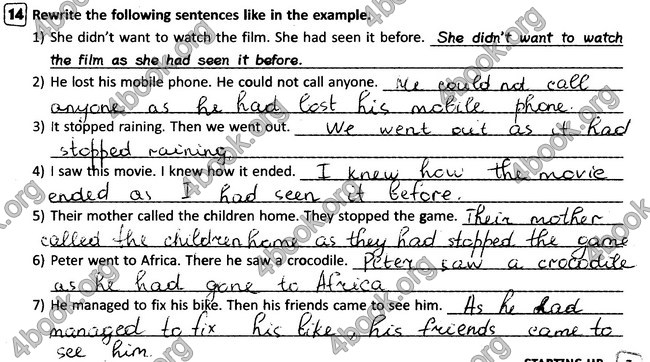 14 Rewrite the following sentences like in the example.
1) She didn't want to watch the film. She had seen it before. She didn't want to watch
the film as she had seen it before.
2) He lost his mobile phone. He could not call anyone. He could not call
anyone as he had lost his mobile phone.
3) It stopped raining. Then we went out. We went out as it had
stopped raining
4) I saw this movie. I knew how it ended. I knew how the movie
ended as I had seen it before.
5) Their mother called the children home. They stopped the game. Their mother
called the children home as they had stopped the game
6) Peter went to Africa. There he saw a crocodile. Peter saw a crocodile
as he had gone to Africa
7) He managed to fix his bike. Then his friends came to see him. As he had
managed to fix his bike, his friends came to
see him.
STARTING UP
4book.org